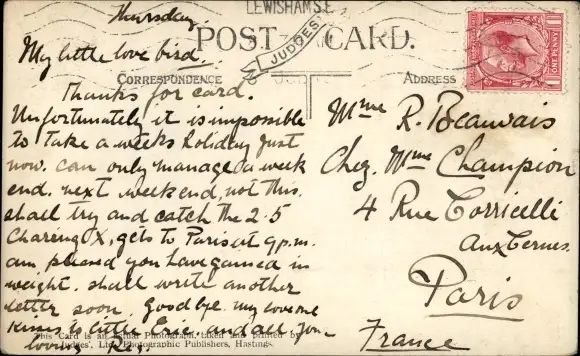 LEWISHAM S.E.
Thursday.
My little love bird.
POST CARD.
JUDGES'
ONE PENNY
CORRESPONDENCE
ADDRESS
Thanks for card.
Unfortunately it is impossible
to take a weeks holiday just
now. can only manage a week
end. next week end, not this.
shall try and catch the 2.5
Charing X, gets to Paris at 9 p.m.
am pleased you have gained in
weight. shall write another
letter soon. Good bye. my love and
kisses to little Eric. and all. your
loving Reg.
Mme R. Beauvais
Chez. Mme Champion
4 Rue Torricelli
Aux Ternes
Paris
France
This Card is an Photograph, taken and printed by
Judges', Ltd., Photographic Publishers, Hastings.